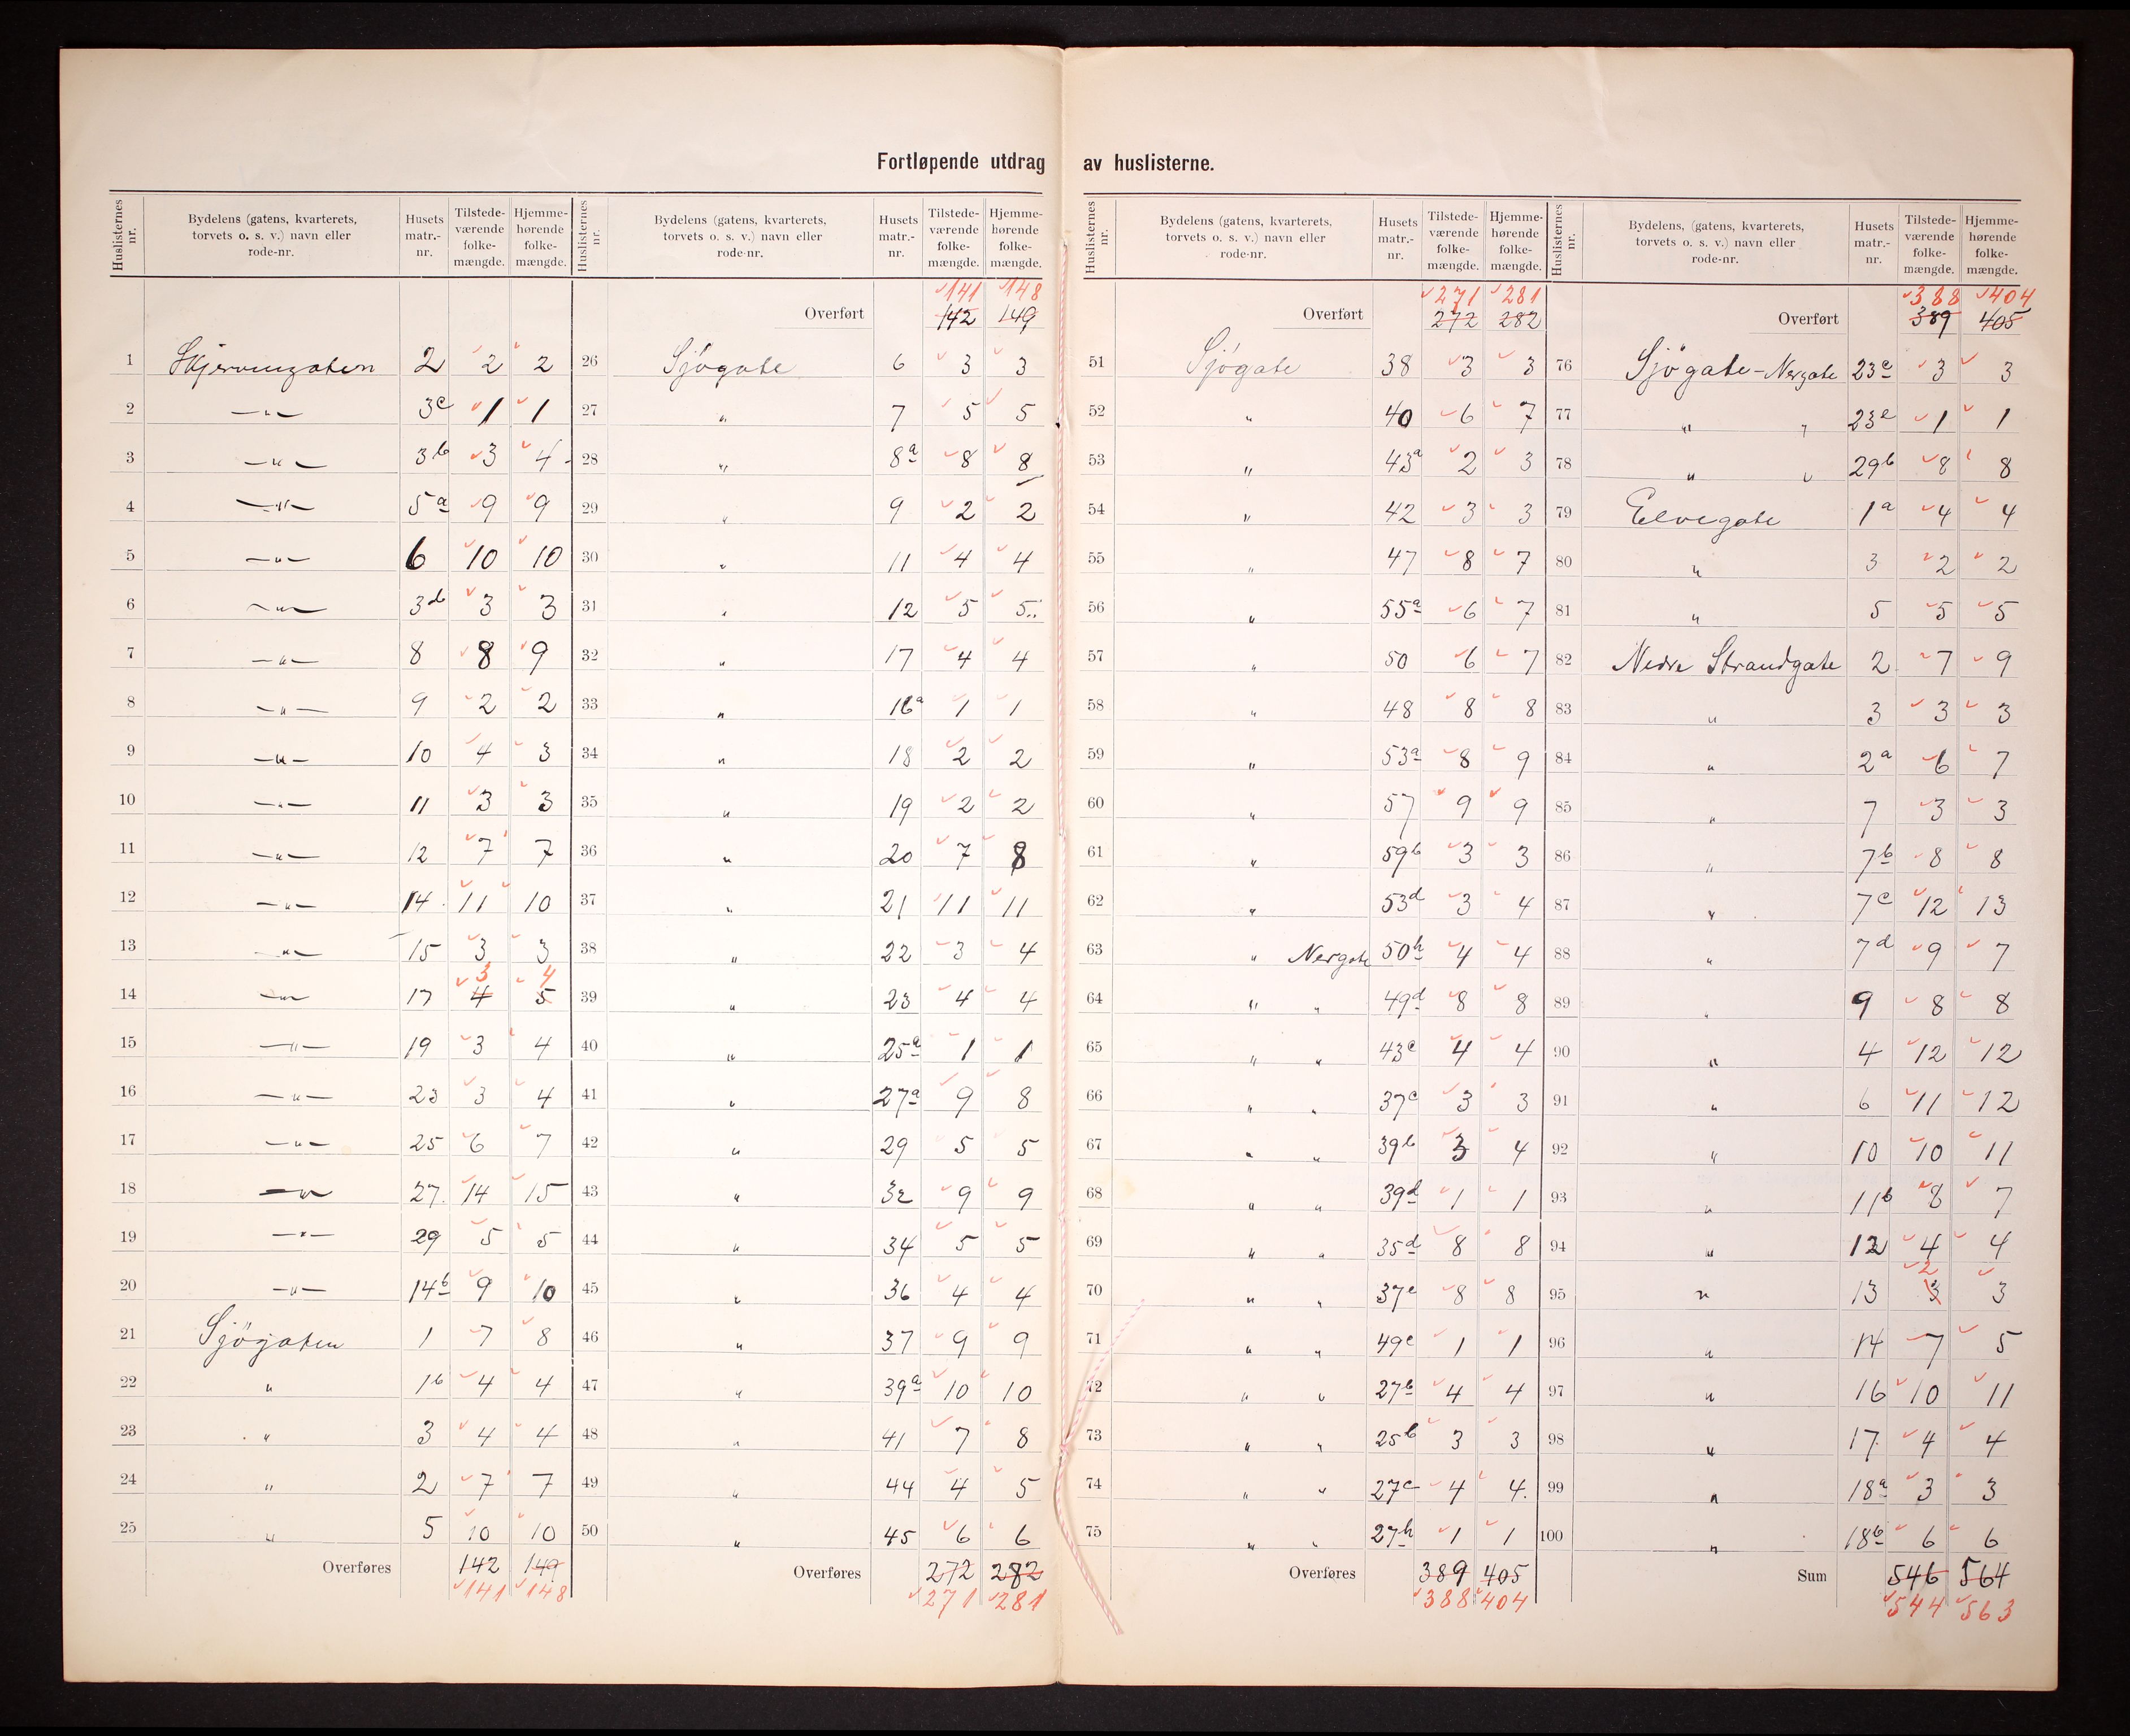 Fortløpende utdrag av huslisterne.
Huslisternes nr. | Bydelens (gatens, kvarterets, torvets o. s. v.) navn eller rode-nr. | Husets matr.-nr. | Tilstede-værende folke-mængde. | Hjemme-hørende folke-mængde.
1 Skjervengaten 2 2 2
2 —"— 3c 1 1
3 —"— 3b 3 4
4 —"— 5a 9 9
5 —"— 6 10 10
6 —"— 3d 3 3
7 —"— 8 8 9
8 —"— 9 2 2
9 —"— 10 4 3
10 —"— 11 3 3
11 —"— 12 7 7
12 —"— 14 11 10
13 —"— 15 3 3
3 4
14 —"— 17 4 5
15 —"— 19 3 4
16 —"— 23 3 4
17 —"— 25 6 7
18 —"— 27 14 15
19 —"— 29 5 5
20 —"— 14b 9 10
21 Sjøgaten 1 7 8
22 " 1b 4 4
23 " 3 4 4
24 " 2 7 7
25 " 5 10 10
Overføres 142 149
141 148
Huslisternes nr. | Bydelens (gatens, kvarterets, torvets o. s. v.) navn eller rode-nr. | Husets matr.-nr. | Tilstede-værende folke-mængde. | Hjemme-hørende folke-mængde.
141 148
Overført 142 149
26 Sjøgate 6 3 3
27 " 7 5 5
28 " 8a 8 8
29 " 9 2 2
30 " 11 4 4
31 " 12 5 5
32 " 17 4 4
33 " 16a 1 1
34 " 18 2 2
35 " 19 2 2
36 " 20 7 8
37 " 21 11 11
38 " 22 3 4
39 " 23 4 4
40 " 25a 1 1
41 " 27a 9 8
42 " 29 5 5
43 " 32 9 9
44 " 34 5 5
45 " 36 4 4
46 " 37 9 9
47 " 39a 10 10
48 " 41 7 8
49 " 44 4 5
50 " 45 6 6
Overføres 272 282
271 281
Huslisternes nr. | Bydelens (gatens, kvarterets, torvets o. s. v.) navn eller rode-nr. | Husets matr.-nr. | Tilstede-værende folke-mængde. | Hjemme-hørende folke-mængde.
271 281
Overført 272 282
51 Sjøgate 38 3 3
52 " 40 6 7
53 " 43a 2 3
54 " 42 3 3
55 " 47 8 7
56 " 55a 6 7
57 " 50 6 7
58 " 48 8 8
59 " 53a 8 9
60 " 57 9 9
61 " 59b 3 3
62 " 53d 3 4
63 " Nergate 50h 4 4
64 " " 49d 8 8
65 " " 43c 4 4
66 " " 37c 3 3
67 " " 39b 3 4
68 " " 39d 1 1
69 " " 35d 8 8
70 " " 37e 8 8
71 " " 49c 1 1
72 " " 27b 4 4
73 " " 25b 3 3
74 " " 27c 4 4
75 " " 27h 1 1
Overføres 389 405
388 404
Huslisternes nr. | Bydelens (gatens, kvarterets, torvets o. s. v.) navn eller rode-nr. | Husets matr.-nr. | Tilstede-værende folke-mængde. | Hjemme-hørende folke-mængde.
388 404
Overført 389 405
76 Sjøgate-Nergate 23c 3 3
77 " " 23e 1 1
78 " " 29b 8 8
79 Elvegate 1a 4 4
80 " 3 2 2
81 " 5 5 5
82 Nedre Strandgate 2 7 9
83 " 3 3 3
84 " 2a 6 7
85 " 7 3 3
86 " 7b 8 8
87 " 7c 12 13
88 " 7d 9 7
89 " 9 8 8
90 " 4 12 12
91 " 6 11 12
92 " 10 10 11
93 " 11b 8 7
94 " 12 4 4
2
95 " 13 3 3
96 " 14 7 5
97 " 16 10 11
98 " 17 4 4
99 " 18a 3 3
100 " 18b 6 6
Sum 546 564
544 563